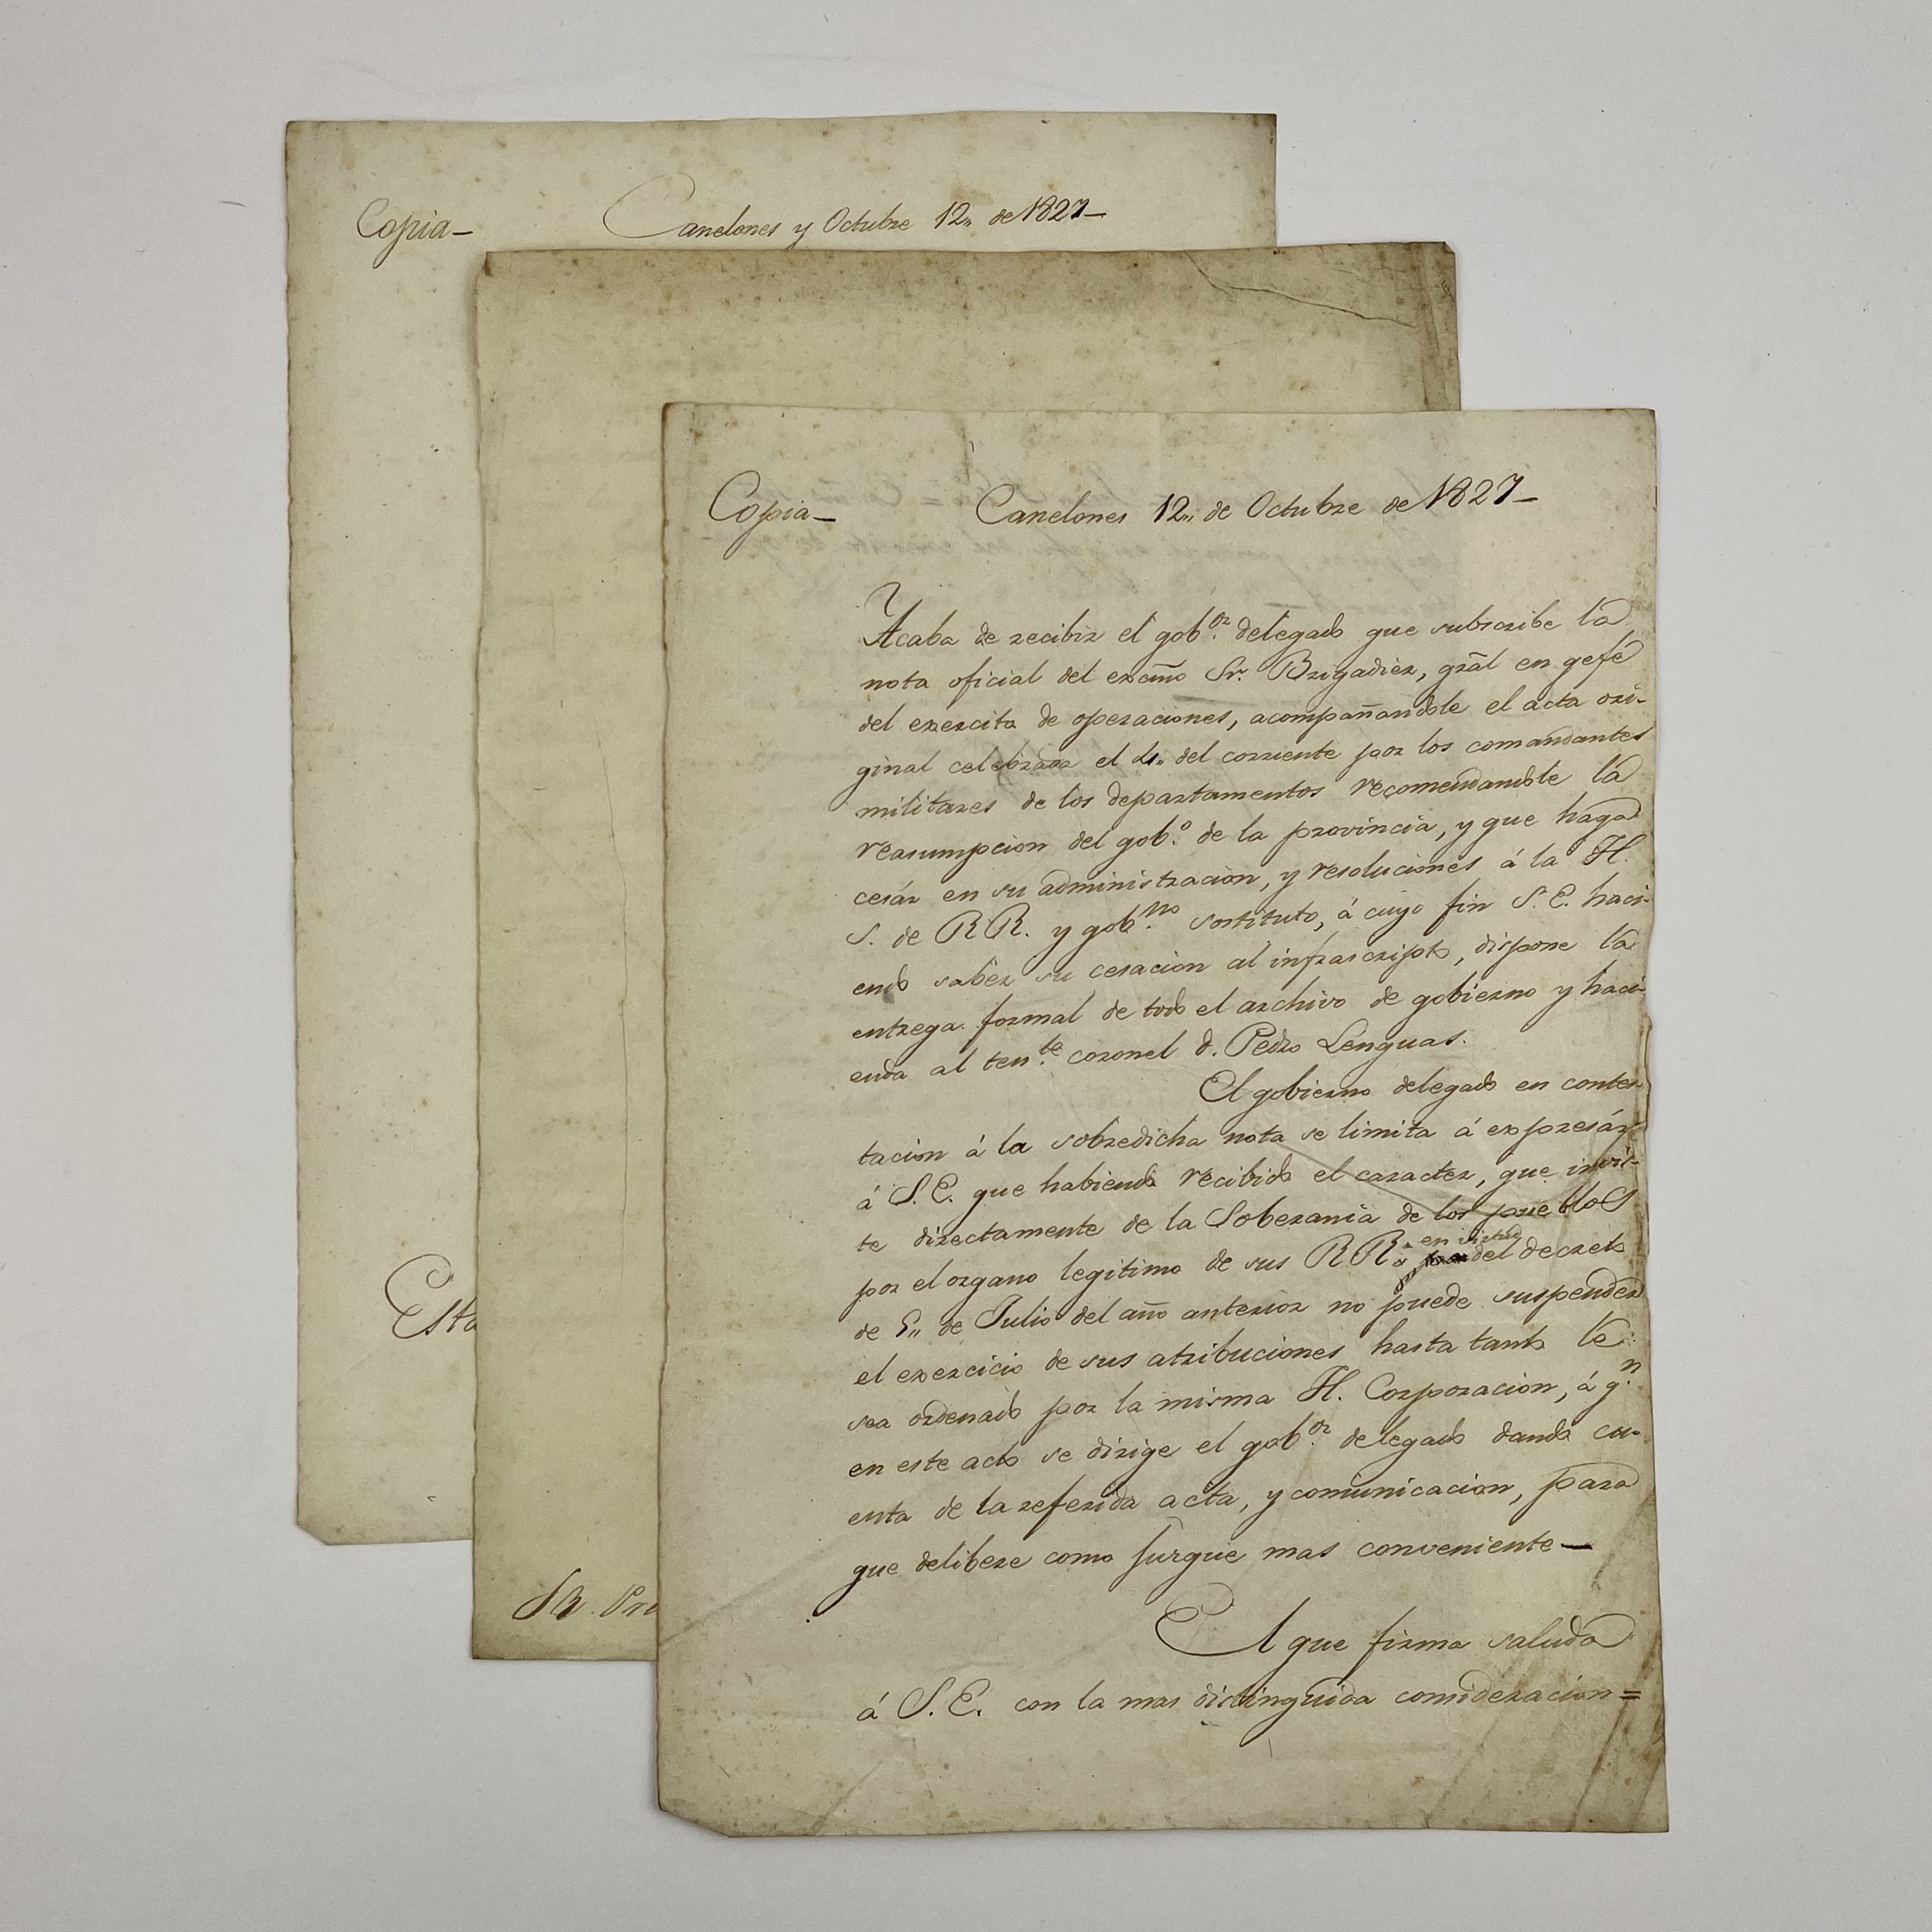 Copia—
Canelones y Octubre 12,, de 1827—
Esta
Sr. Pre
Copia— Canelones 12,, de Octubre de 1827—
Acaba de recibir el gob.or delegado que subscribe la
nota oficial del excmo Sr. Brigadier, gral en gefe
del exercito de operaciones, acompañandole el acta ori-
ginal celebrada el 4,, del corriente por los comandantes
militares de los departamentos recomendandole la
reasumpcion del gob.o de la provincia, y que haga
cesár en su administracion, y resoluciones á la H.
S. de RR. y gob.no sostituto, á cuyo fin S.E. haci-
endo saber su cesacion al infrascripto, dispone la
entrega formal de todo el archivo de gobierno y haci-
enda al ten.te coronel d. Pedro Lenguas.
El gobierno delegado en contes-
tacion á la sobredicha nota se limita á expresár
á S.E. que habiendo recibido el caracter, que invis-
te directamente de la Soberania de los pueblos
por el organo legitimo de sus RR. en virtud del decreto
de 5,, de Julio del año anterior no puede suspender
el exercicio de sus atribuciones hasta tanto le
sea ordenado por la misma H. Corporacion, á q.n
en este acto se dirige el gob.or delegado dando cu-
enta de la referida acta, y comunicacion, para
que delibere como jusgue mas conveniente—
El que firma saluda
á S.E. con la mas distinguida consideracion=